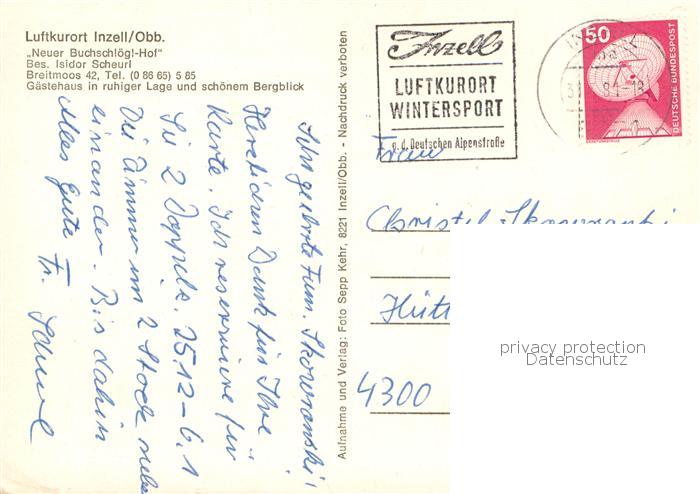 Luftkurort Inzell/Obb.
„Neuer Buchschlögl-Hof"
Bes. Isidor Scheurl
Breitmoos 42, Tel. (0 86 65) 5 85
Gästehaus in ruhiger Lage und schönem Bergblick
Sehr geehrte Fam. Skowranski!
Herzlichen Dank für Ihre
Karte. Ich reserviere für
Sie 2 Doppelz. 25.12–6.1
Die Zimmer im 2 Stock neben
einander. Bis dahin
alles Gute Fr. Scheurl
Aufnahme und Verlag: Foto Sepp Kehr, 8221 Inzell/Obb. - Nachdruck verboten
Inzell
LUFTKURORT
WINTERSPORT
a. d. Deutschen Alpenstraße
50
DEUTSCHE BUNDESPOST
Frau
Christel Skowranski
Hütt
4300
privacy protection
Datenschutz